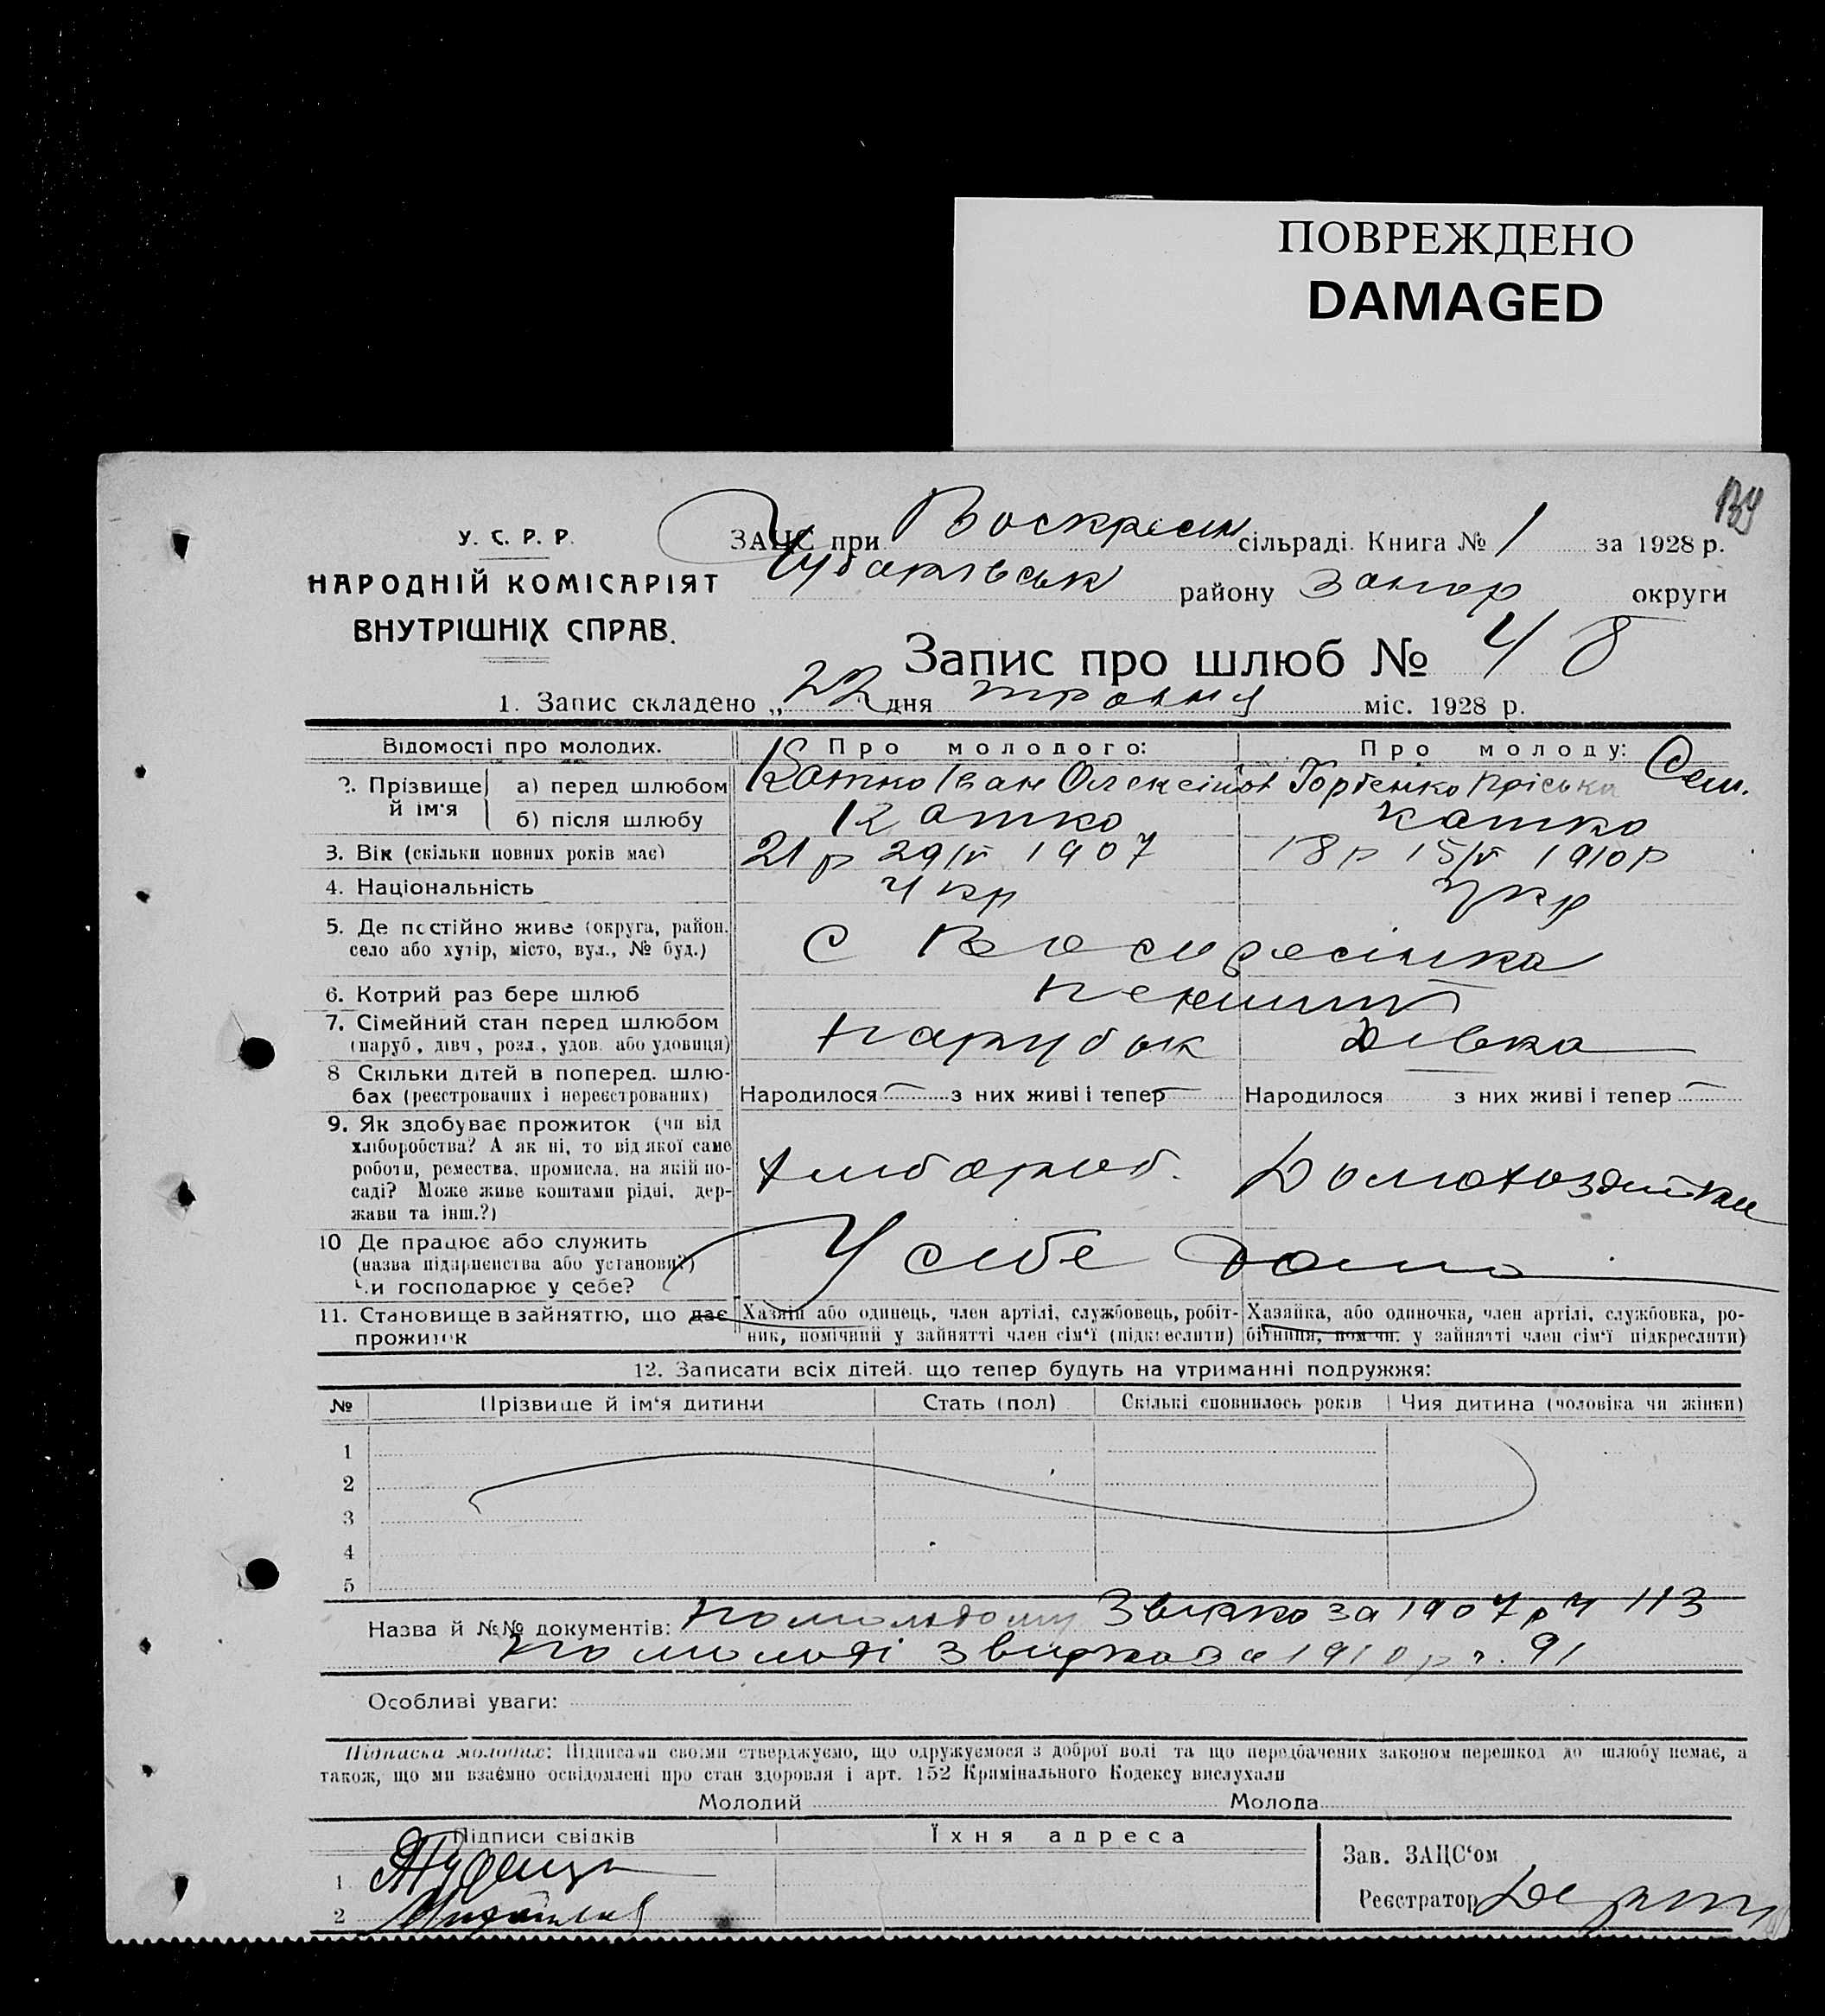 ПОВРЕЖДЕНО
DAMAGED
134
У. С. Р. Р.
НАРОДНІЙ КОМІСАРІЯТ
ВНУТРІШНІХ СПРАВ.
ЗАЦС при Воскресен сільраді. Книга № 1 за 1928 р.
Чубарівськ району Запор округи
Запис про шлюб № 48
1. Запис складено „22 дня травня міс. 1928 р.
Відомості про молодих. Про молодого: Про молоду:
2. Прізвище й ім'я а) перед шлюбом Котко Іван Олексійов Горпенко Пріська Сем.
б) після шлюбу Котко Котко
3. Вік (скільки повних років має) 21 р 29/V 1907 18 р 15/V 1910 р
4. Національність Укр Укр
5. Де постійно живе (округа, район, село або хутір, місто, вул., № буд.) С Воскресінка
6. Котрий раз бере шлюб
7. Сімейний стан перед шлюбом (паруб., дівч., розл., удов. або удовиця) парубок дівка
8 Скільки дітей в поперед. шлюбах (реєстрованих і нереєстрованих) Народилося — з них живі і тепер — Народилося з них живі і тепер —
9. Як здобуває прожиток (чи від хліборобства? А як ні, то від якої саме роботи, ремества, промисла, на якій посаді? Може живе коштами рідні, держави та інш.?) хлібороб. Домохозяйка
10 Де працює або служить (назва підприємства або установи) Чи господарює у себе? У себе дома
11. Становище в зайняттю, що дає прожиток Хазяін або одинець, член артілі, службовець, робітник, помічний у зайнятті член сім'ї (підкреслити) Хазяйка, або одиночка, член артілі, службовка, робітниця, помічн. у зайнятті член сім'ї підкреслити)
12. Записати всіх дітей, що тепер будуть на утриманні подружжя:
№ Прізвище й ім'я дитини Стать (пол) Скількі сповнилось років Чия дитина (чоловіка чи жінки)
1
2
3
4
5
Назва й №№ документів: По молодому Звірка за 1907 р ч 113
По молоді звирка за 1910 р ч. 91
Особливі уваги:
Підписка молодих: Підписами своїми стверджуємо, що одружуємося з доброї волі та що передбачених законом перешкод до шлюбу немає, а
також, що ми взаємно освідомлені про стан здоровля і арт. 152 Кримінального Кодексу вислухали
Молодий Молода
Підписи свідків Їхня адреса Зав. ЗАЦС'ом
1
2
Реєстратор